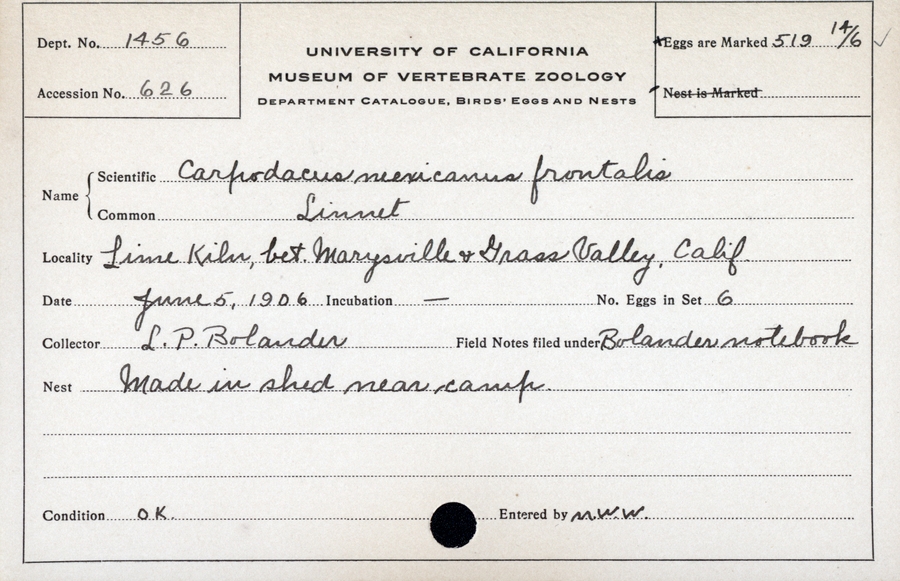 Dept. No. 1456
Accession No. 626
UNIVERSITY OF CALIFORNIA
MUSEUM OF VERTEBRATE ZOOLOGY
DEPARTMENT CATALOGUE, BIRDS' EGGS AND NESTS
Eggs are Marked 519 14/6 ✓
Nest is Marked
Name { Scientific Carpodacus mexicanus frontalis
Common Linnet
Locality Lime Kiln, bet. Marysville & Grass Valley, Calif.
Date June 5, 1906 Incubation — No. Eggs in Set 6
Collector L. P. Bolander Field Notes filed under Bolander notebook
Nest Made in shed near camp.
Condition O.K. Entered by M.W.W.